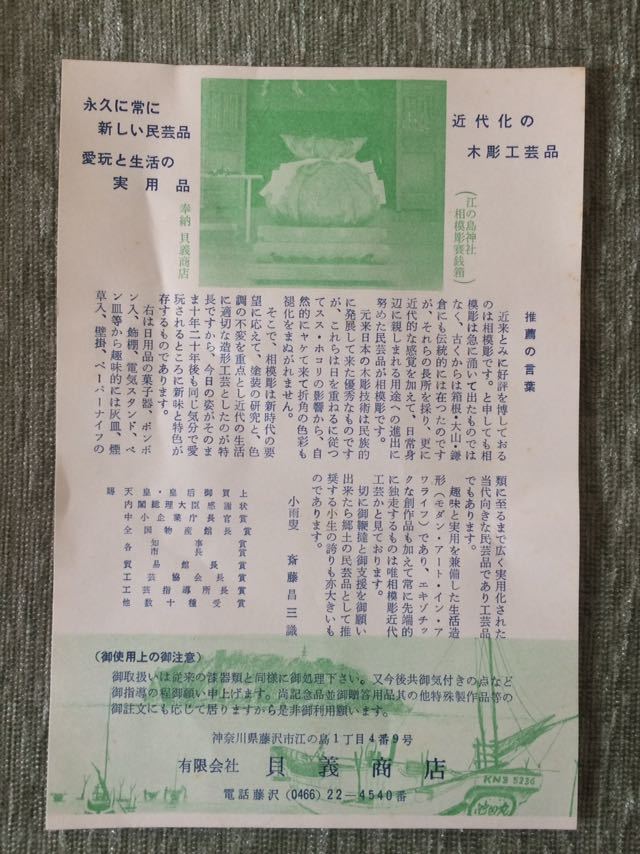 近代化の
木彫工芸品
(江の島神社
相模彫賽銭箱)
奉納 貝義商店
永久に常に
新しい民芸品
愛玩と生活の
実用品
推薦の言葉
近来とみに好評を博しておる
のは相模彫です。と申しても相
模彫は急に涌いて出たものでは
なく、古くからは箱根・大山・鎌
倉にも伝統的には在つたのです
が、それらの長所を採り、更に
近代的な感覚を加えて、日常身
辺に親しまれる用途への進出に
努めた民芸品が相模彫です。
元来日本の木彫技術は民族的
に発展して来た優秀なものです
が、これらは日を重ねるに従つ
てスス・ホコリの影響から、自
然的にヤケて来て折角の色彩も
褪化をまぬがれません。
そこで、相模彫は新時代の要
望に応えて、塗装の研究と、色
調の不変を重点とし近代の生活
に適切な造形工芸としたのが特
長ですから、今日の姿がそのま
ま十年二十年後も同じ気分で愛
玩されるところに新味と特色が
存するものであります。
右は日用品の菓子器、ボンボ
ン入、飾棚、電気スタンド、ペ
ン皿等から趣味的には灰皿、煙
草入、壁掛、ペーパーナイフの
類に至るまで広く実用化された
当代向きな民芸品であり工芸品
でもあります。
趣味と実用を兼備した生活造
形(モダン・アート・イン・ア
ワライフ)であり、エキゾチッ
クな創作品も加えて常に先端的
に独走するものは唯相模彫近代
工芸かと見ております。
切に御鞭撻と御支援を御願い
出来たら郷土の民芸品として推
奨する小生の誇りも亦大きいも
のであります。
小雨叟 斎藤昌三識
賜 天皇・皇后御買上
内閣総理大臣感謝状
中小企業庁長官賞
全国物産館長賞
各 知事賞
市長賞
貿易館長賞
工芸協会長賞
工芸指導所長賞
他数十種受賞
(御使用上の御注意)
御取扱いは従来の漆器類と同様に御処理下さい。又今後共御気付きの点など
御指導の程御願い申上げます。尚記念品並御贈答用品其の他特殊製作品等の
御註文にも応じて居りますから是非御利用願います。
神奈川県藤沢市江の島1丁目4番9号
有限会社 貝義商店
電話藤沢(0466)22-4540番
KN3 5236